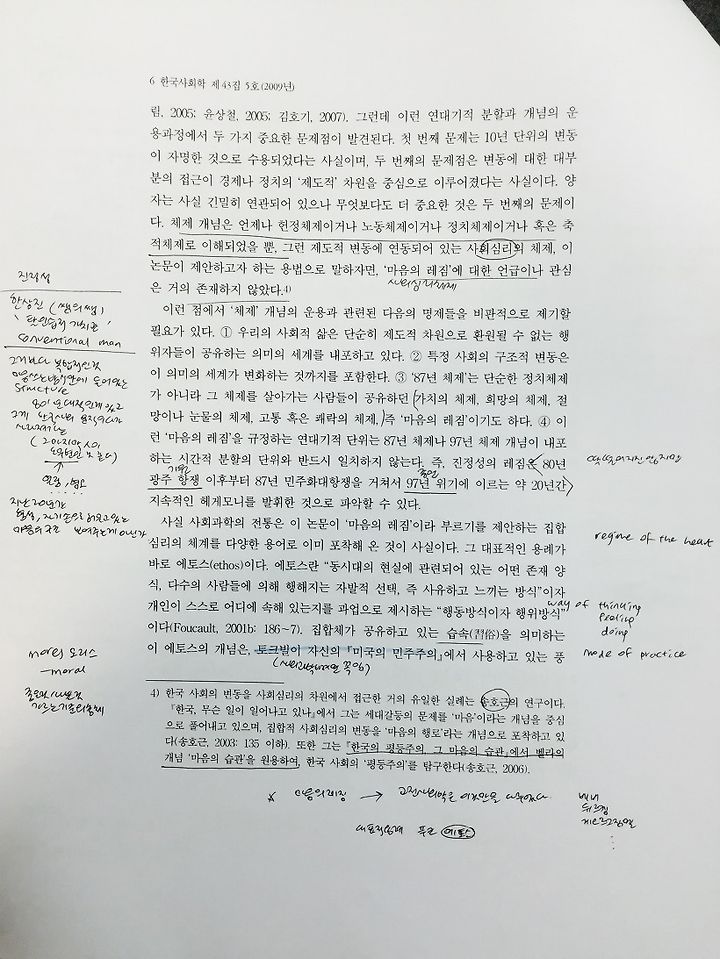 6 한국사회학 제43집 5호(2009년)
림, 2005; 윤상철, 2005; 김호기, 2007). 그런데 이런 연대기적 분할과 개념의 운
용과정에서 두 가지 중요한 문제점이 발견된다. 첫 번째 문제는 10년 단위의 변동
이 자명한 것으로 수용되었다는 사실이며, 두 번째의 문제점은 변동에 대한 대부
분의 접근이 경제나 정치의 '제도적' 차원을 중심으로 이루어졌다는 사실이다. 양
자는 사실 긴밀히 연관되어 있으나 무엇보다도 더 중요한 것은 두 번째의 문제이
다. 체제 개념은 언제나 헌정체제이거나 노동체제이거나 정치체제이거나 혹은 축
적체제로 이해되었을 뿐, 그런 제도적 변동에 연동되어 있는 사회심리의 체제, 이
논문이 제안하고자 하는 용법으로 말하자면, '마음의 레짐'에 대한 언급이나 관심
은 거의 존재하지 않았다.4)
사회심리체제
이런 점에서 '체제' 개념의 운용과 관련된 다음의 명제들을 비판적으로 제기할
필요가 있다. ① 우리의 사회적 삶은 단순히 제도적 차원으로 환원될 수 없는 행
위자들이 공유하는 의미의 세계를 내포하고 있다. ② 특정 사회의 구조적 변동은
이 의미의 세계가 변화하는 것까지를 포함한다. ③ '87년 체제'는 단순한 정치체제
가 아니라 그 체제를 살아가는 사람들이 공유하던 가치의 체제, 희망의 체제, 절
망이나 눈물의 체제, 고통 혹은 쾌락의 체제, 즉 '마음의 레짐'이기도 하다. ④ 이
런 '마음의 레짐'을 규정하는 연대기적 단위는 87년 체제나 97년 체제 개념이 내포
하는 시간적 분할의 단위와 반드시 일치하지 않는다. 즉, 진정성의 레짐은 80년
광주 항쟁 이후부터 87년 민주화대항쟁을 거쳐서 97년 위기에 이르는 약 20년간
지속적인 헤게모니를 발휘한 것으로 파악할 수 있다.
사실 사회과학의 전통은 이 논문이 '마음의 레짐'이라 부르기를 제안하는 집합
심리의 체계를 다양한 용어로 이미 포착해 온 것이 사실이다. 그 대표적인 용례가
바로 에토스(ethos)이다. 에토스란 "동시대의 현실에 관련되어 있는 어떤 존재 양
식, 다수의 사람들에 의해 행해지는 자발적 선택, 즉 사유하고 느끼는 방식"이자
개인이 스스로 어디에 속해 있는지를 과업으로 제시하는 "행동방식이자 행위방식"
이다(Foucault, 2001b: 186~7). 집합체가 공유하고 있는 습속(習俗)을 의미하는
이 에토스의 개념은, 토크빌이 자신의 『미국의 민주주의』에서 사용하고 있는 풍
4) 한국 사회의 변동을 사회심리의 차원에서 접근한 거의 유일한 실례는 송호근의 연구이다.
『한국, 무슨 일이 일어나고 있나』에서 그는 세대갈등의 문제를 '마음'이라는 개념을 중심
으로 풀어내고 있으며, 집합적 사회심리의 변동을 '마음의 행로'라는 개념으로 포착하고 있
다(송호근, 2003: 135 이하). 또한 그는 『한국의 평등주의, 그 마음의 습관』에서 벨라의
개념 '마음의 습관'을 원용하여, 한국 사회의 '평등주의'를 탐구한다(송호근, 2006).
진정성
한상진 (쌤의쌤)
conventional man
structure
지난 20년간
mores 모리스
- moral
regime of the heart
way of thinking
feeling
doing
mode of practice
마음의 레짐 →
베버
뒤르켐
푸코 에토스